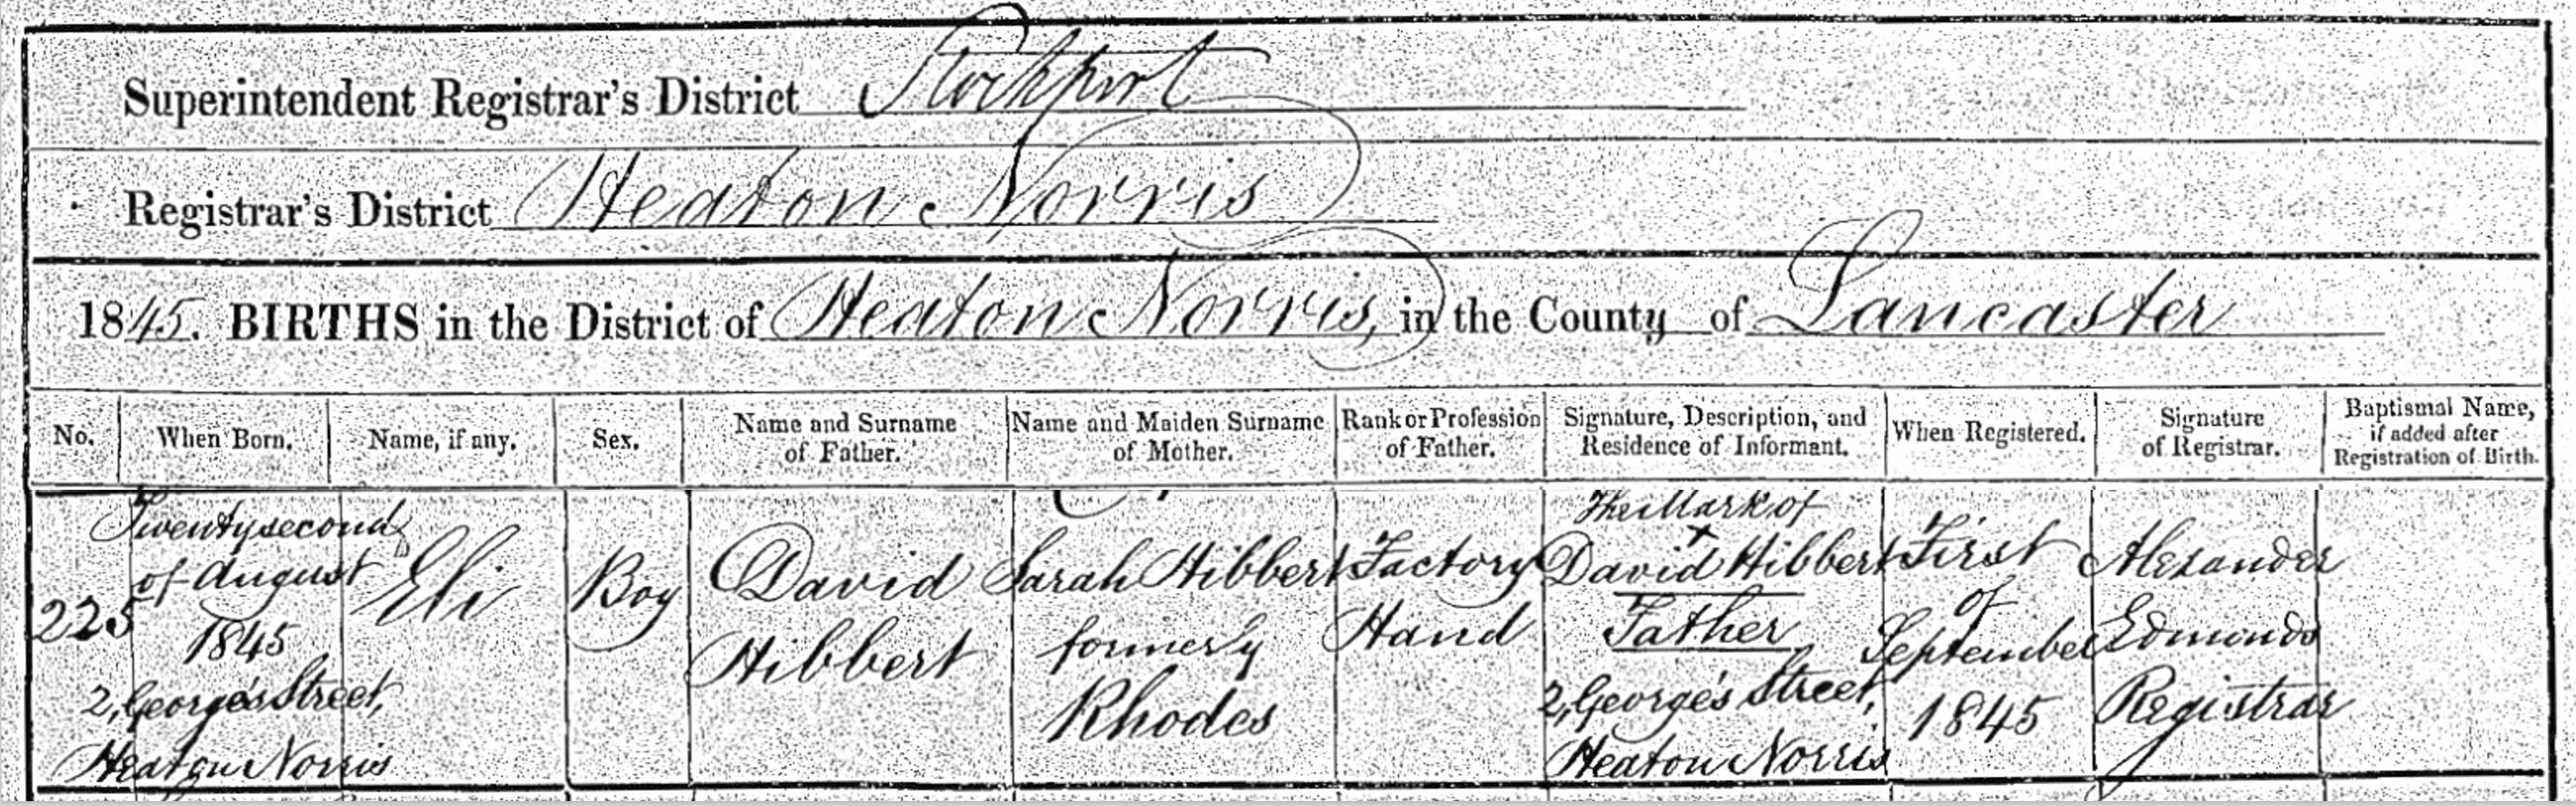 Superintendent Registrar's District Stockport
Registrar's District Heaton Norris
1845. BIRTHS in the District of Heaton Norris, in the County of Lancaster
No.
When Born.
Name, if any.
Sex.
Name and Surname
of Father.
Name and Maiden Surname
of Mother.
Rank or Profession
of Father.
Signature, Description, and
Residence of Informant.
When Registered.
Signature
of Registrar.
Baptismal Name,
if added after
Registration of Birth.
225
Twenty second
of August
1845
2, George's Street,
Heaton Norris
Eli
Boy
David
Hibbert
Sarah Hibbert
formerly
Rhodes
Factory
Hand
The Mark of
X
David Hibbert
Father
2, George's Street,
Heaton Norris
First
of
September
1845
Alexander
Edmonds
Registrar